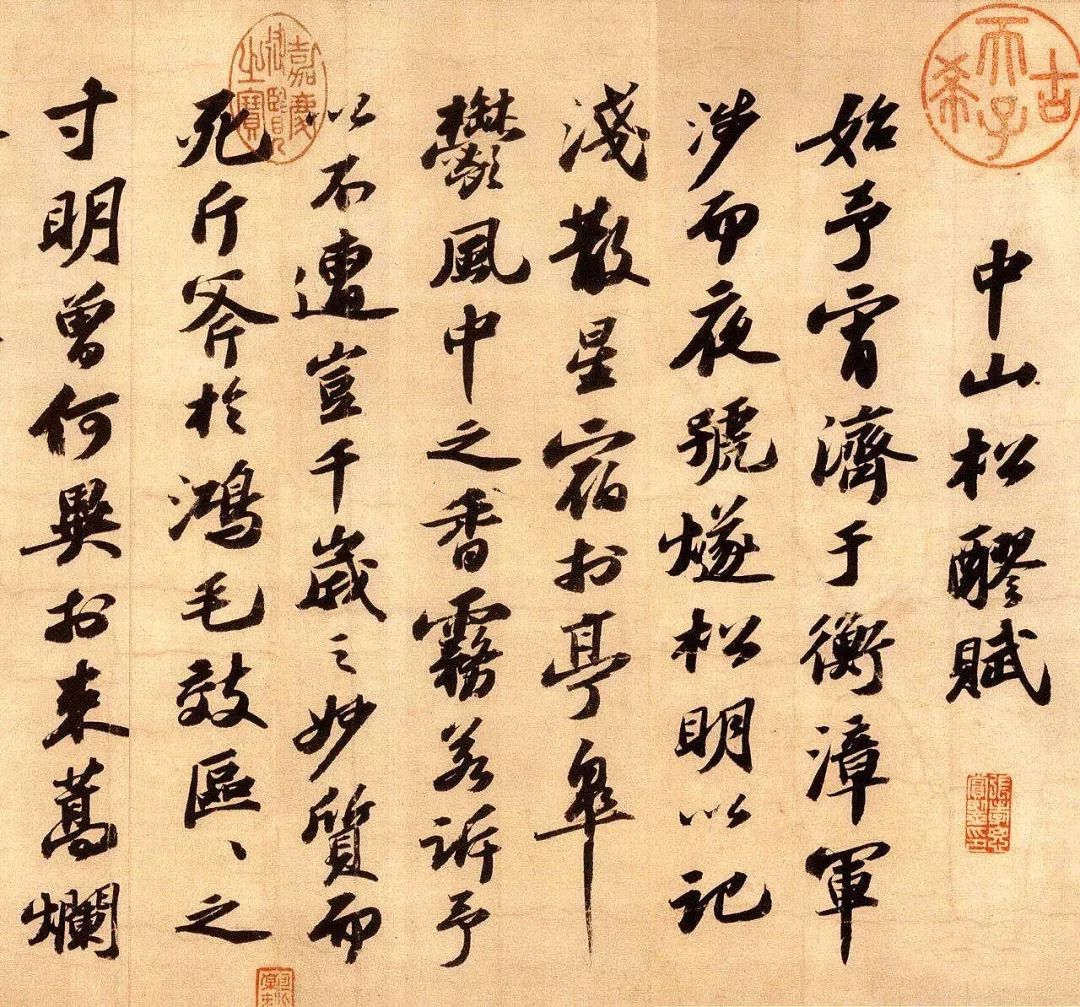 古希天子
中山松醪賦
張孝思賞鑒印
始予宵濟于衡漳軍
涉而夜號燧松明以記
淺散星宿扵亭皐
鬱風中之香霧若訴予
嘉慶御覽之寶
以不遭豈千歲之妙質而
死斤斧於鴻毛效區〻之
寸明曾何異扵束蒿爛